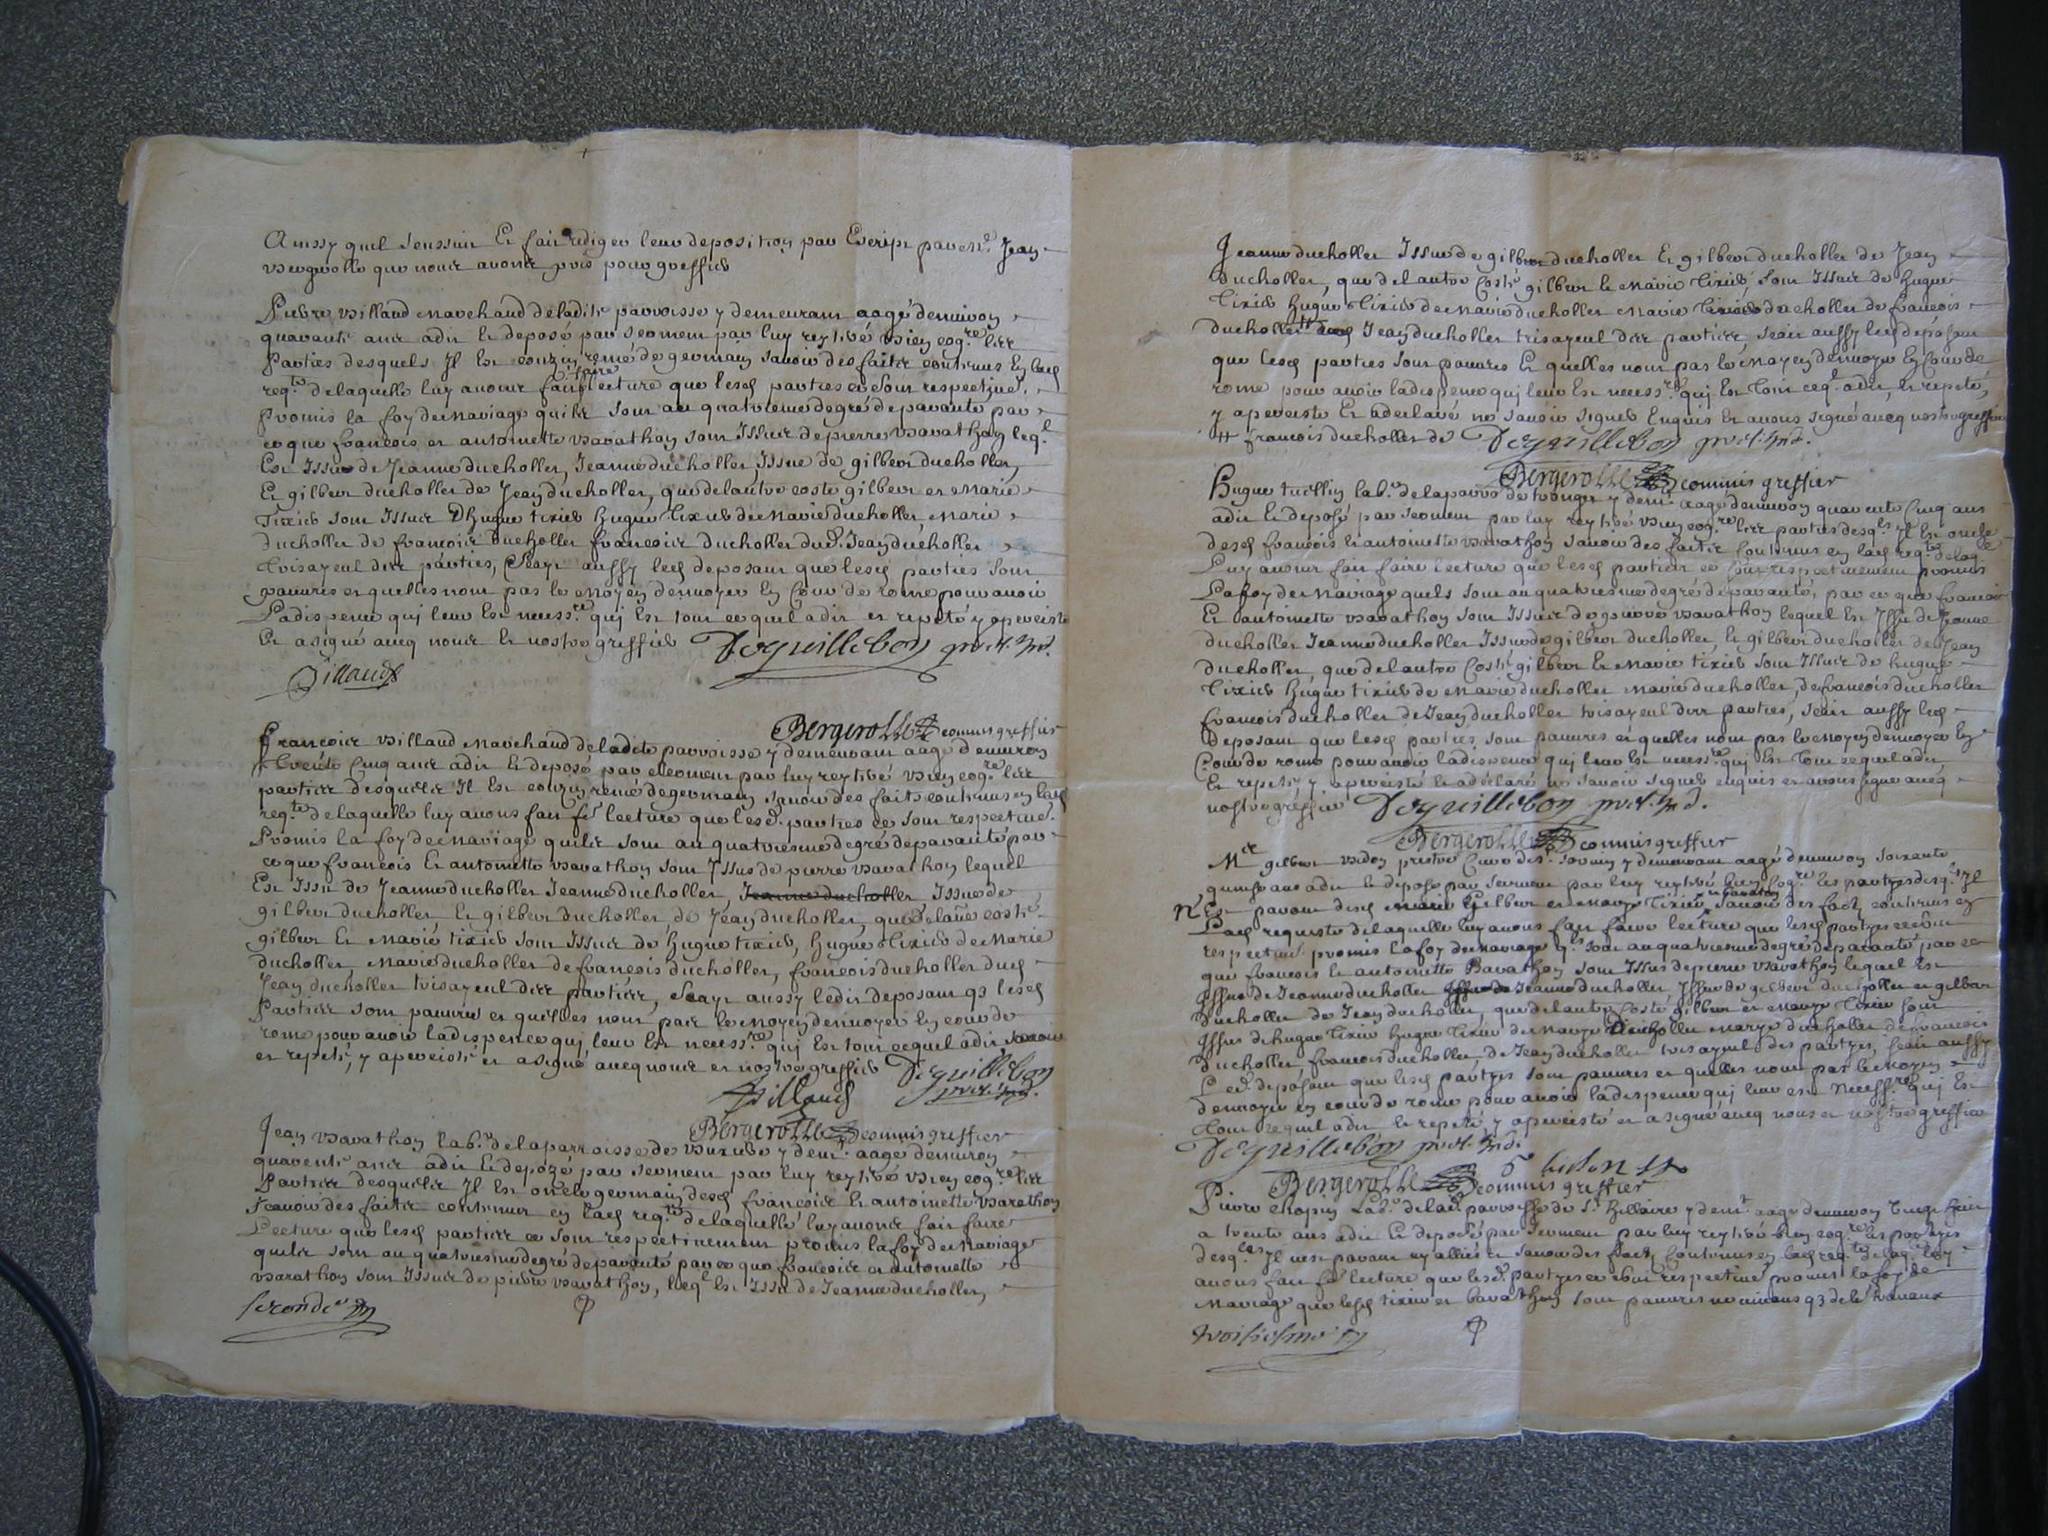 Ainssy quil senssuit Et fait rediger leur deposition par Escript par me. Jean
Bergerolle que nous avons pris pour greffier
Pierre Villaud Marchand de ladite parroisse y demeurant aagé denviron
quarante ans a dit et deposé par serment par luy reytéré bien cogre. les
Parties desquels Il Est couzin remé de germain savoir des faits contenus En lad
reqte. de laquelle luy avons fait faire lecture que lesd parties ce sont respectivet.
Promis la foy de Mariage qu'ils sont au quatrieme degré de paranté par
ce que francois et antoinette barathon sont Issus de pierre barathon leql
Est Issu de Jeanne ducholler, Jeanne ducholler, Issue de gilbert ducholler,
Et gilbert ducholler de Jean ducholler, que de lautre costé gilbert et Marie
Tixier sont Issus D'hugue tixier hugue Tixier de Marie ducholler, Marie
ducholler de francois ducholler francois ducholler dud. Jean ducholler
Trisayeul des parties, Scayt aussy led deposant que lesd parties sont
pauvres et quelles nont pas le moyen denvoyer En Cour de rome pour avoir
La dispence qui leur Est necessre. qui Est tout ce quel a dit et repeté y a perciste
Et a signé avecq nous Et nostre greffier Deguillebon prd. Ind.
Villaud
Bergerolle commis greffier
Francois Villaud Marchand de ladite parroisse y demeurant aagé denviron
Trente Cinq ans a dit Et deposé par serment par luy reytéré bien cogre. les
parties desquelles Il Est couzin remé de germain savoir des faits contenus en lad
reqte. de laquelle luy avons fait fe. lecture que lesd. parties ce sont respectivet.
Promis la foy de Mariage qu'ils sont au quatriesme degré de paranté par
ce que francois Et antoinette barathon sont Issus de pierre barathon lequel
Est Issu de Jeanne ducholler Jeanne ducholler, Jeanne ducholler Issue de
gilbert ducholler Et gilbert ducholler de Jean ducholler, que de lautre costé
gilbert Et Marie tixier sont Issus de hugue tixier, hugue Tixier de Marie
ducholler, Marie ducholler de francois ducholler, francois ducholler dud
Jean ducholler trisayeul des parties, Scayt aussy ledit deposant q3 lesd
Parties sont pauvres et quelles nont pas le moyen denvoyer En cour de
rome pour avoir la dispence qui leur Est necessre. qui Est tout ce quel a dit savoir
et repeté, y a perciste et a signé avecq nous et nostre greffier Deguillebon
Villaud prd. Ind.
Bergerolle commis greffier
Jean barathon labr. de la parroisse de y demt. aagé denviron
quarente ans a dit Et deposé par serment par luy reytéré bien cogre. les
Parties desquelles Il Est oncle germain desd francois Et antoinette barathon
Scavoir des faits contenus en lad reqte. de laquelle luy avons fait faire
Lecture que lesd parties ce sont respectivement promis la foy de Mariage
qu'ils sont au quatriesme degré de paranté par ce que francois et antoinette
barathon sont Issus de pierre barathon, leql Est Issu de Jeanne ducholler,
seconde
Jeanne ducholler Issue de gilbert ducholler Et gilbert ducholler de Jean
ducholler, que de lautre Costé gilbert Et Marie Tixier, sont Issus de hugue
Tixier hugue Tixier de Marie ducholler Marie ducholler de francois
ducholler # Jean ducholler trisayeul des parties, scait aussy led deposant
que lesd parties sont pauvres Et quelles nont pas le Moyen denvoyer En Cour de
rome pour avoir la dispence qui leur Est necessre. qui Est tout ce ql. a dit, Et repeté,
y a perciste Et a declaré ne savoir signer Enquis Et avons signé avecq nostre greffier
# francois ducholler de Deguillebon prd. Ind.
Bergerolle commis greffier
Hugue labr. de la parrs. de y demt. aagé denviron quarente Cinq ans
a dit Et deposé par serment par luy reytéré bien cogre. les parties desqls. Il Est oncle
desd francois Et antoinette barathon savoir des faits Contenus en lad reqte. de laqle.
Luy avons fait faire lecture que lesd parties ce sont respectivement promis
La foy de Mariage quels sont au quatriesme degré de paranté, par ce que francois
Et antoinette barathon sont Issus de pierre barathon lequel Est Issu de Jeanne
ducholler Jeanne ducholler Issue de gilbert ducholler, Et gilbert ducholler de Jean
ducholler, que de lautre Costé gilbert Et Marie tixier sont Issus de hugue
Tixier hugue tixier de Marie ducholler Marie ducholler, de francois ducholler
francois ducholler de Jean ducholler trisayeul des parties, scait aussy led
deposant que lesd parties sont pauvres et quelles nont pas le moyen denvoyer En
Cour de rome pour avoir la dispence qui leur Est necessre. qui Est Tout ce quel a dit,
Et repeté y a perciste Et a declaré ne savoir signer enquis et avons signé avecq
nostre greffier Deguillebon prd. Ind.
Bergerolle commis greffier
Mre gilbert prestre Curé de St. y demeurant aagé denviron soixante
quinze ans a dit Et deposé par serment par luy reytéré bien cogre. les partyes desqs. Il
n'Est parant desd Gilbert et Marye Tixier, savoir des faits contenus en
Lad requeste de laquelle luy avons fait faire lecture que lesd partyes ce sont
respectivet. promis la foy de Mariage qs. sont au quatriesme degré de paranté par ce
que francois Et antoinette Baratthon sont Issus de pierre baratthon lequel Est
Issue de Jeanne ducholler Issue de Jeanne ducholler Issue de gilbert ducholler et gilbert
ducholler de Jean ducholler, que de lautre Costé gilbert et Marye Tixier sont
Issus de hugue Tixier hugue Tixier de Marye ducholler Marye ducholler de francois
ducholler, francois ducholler, de Jean ducholler trisayeul des partyes, scait aussy
Led. deposant que lesd partyes sont pauvres et quelles nont pas le Moyen
denvoyer en cour de rome pour avoir la dispence qui leur est Necessre. qui Est
Tout ce quil a dit Et repeté, y a perciste et a signé avecq nous et nostre greffier
Deguillebon prd. Ind.
Bergerolle commis greffier
Pierre Chopin Labr. de lad parroisse de St. hillaire y demt. aagé denviron
a trente ans a dit Et deposé par serment par luy reytéré bien cogre. les partyes
desqles. Il nest parant ny allié et savoir des faits Contenus en lad reqte. de laqle. luy
avons fait fe. lecture que lesd. partyes ce sont respectivet. promis la foy de
Mariage que lesd tixier et baratthon sont pauvres ne vivans q3 de le travaux
troisiesme